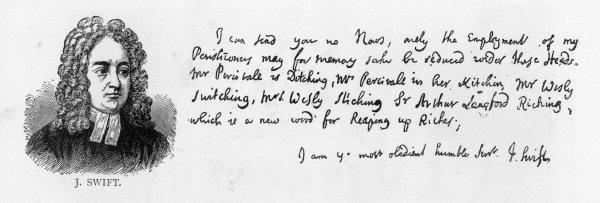 I can send you no News, onely the Employment of my
Parishioners may for memory sake be reduced under these Heads.
Mr Percivale is Ditching, Mrs Percivale in her Kitchin, Mr Wesly
Switching, Mrs Wesly Stiching Sr Arthur Langford Riching,
which is a new word for Heaping up Riches;
I am yr most obedient humble Servt J. Swift
J. SWIFT.